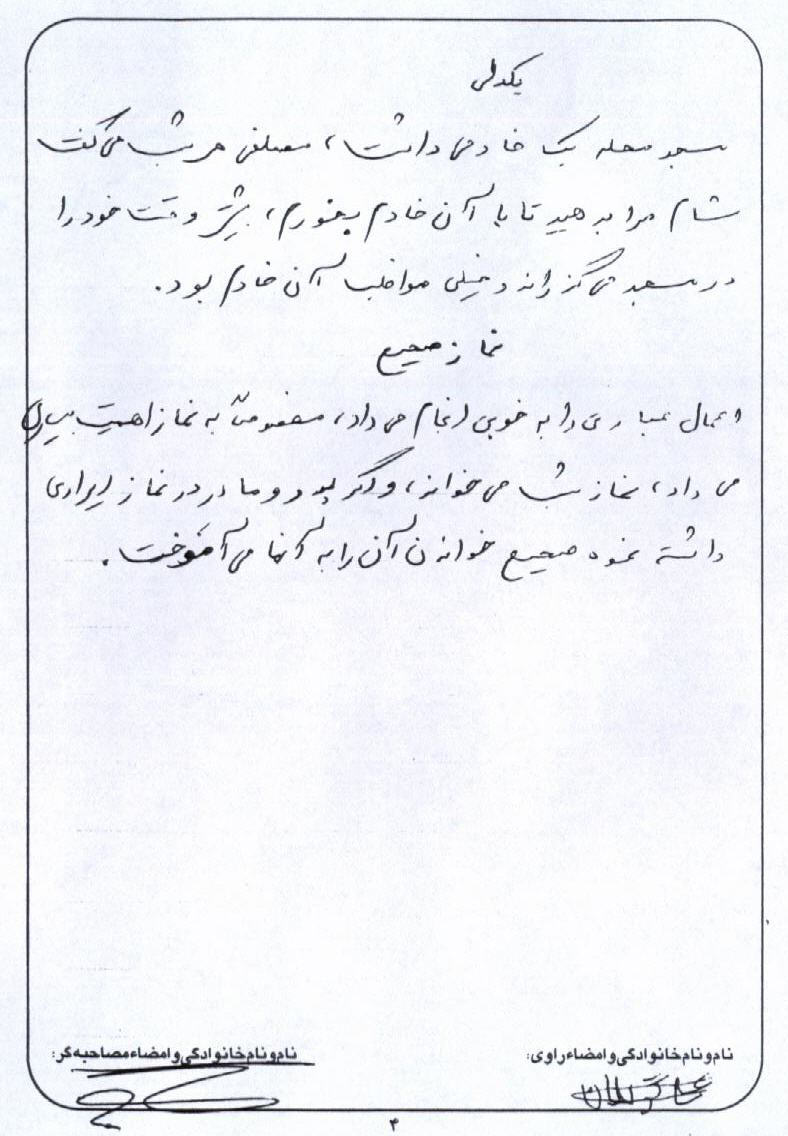 یکدلی
مسجد محله یک خادمی داشت، مصطفی هر شب می گفت
شام مرا بدهید تا با آن خادم بخورم، بیشتر وقت خود را
در مسجد می گذراند و خیلی مواظب آن خادم بود.
نماز صحیح
اعمال عبادی را به خوبی انجام می داد، مخصوصاً به نماز اهمیت بسیاری
می داد، نماز شب می خواند، و اگر پدر و مادر در نماز ایرادی
داشته نحوه صحیح خواندن آن را به آنها می آموخت.
نام و نام خانوادگی و امضاء راوی:
نام و نام خانوادگی و امضاء مصاحبه گر:
۴